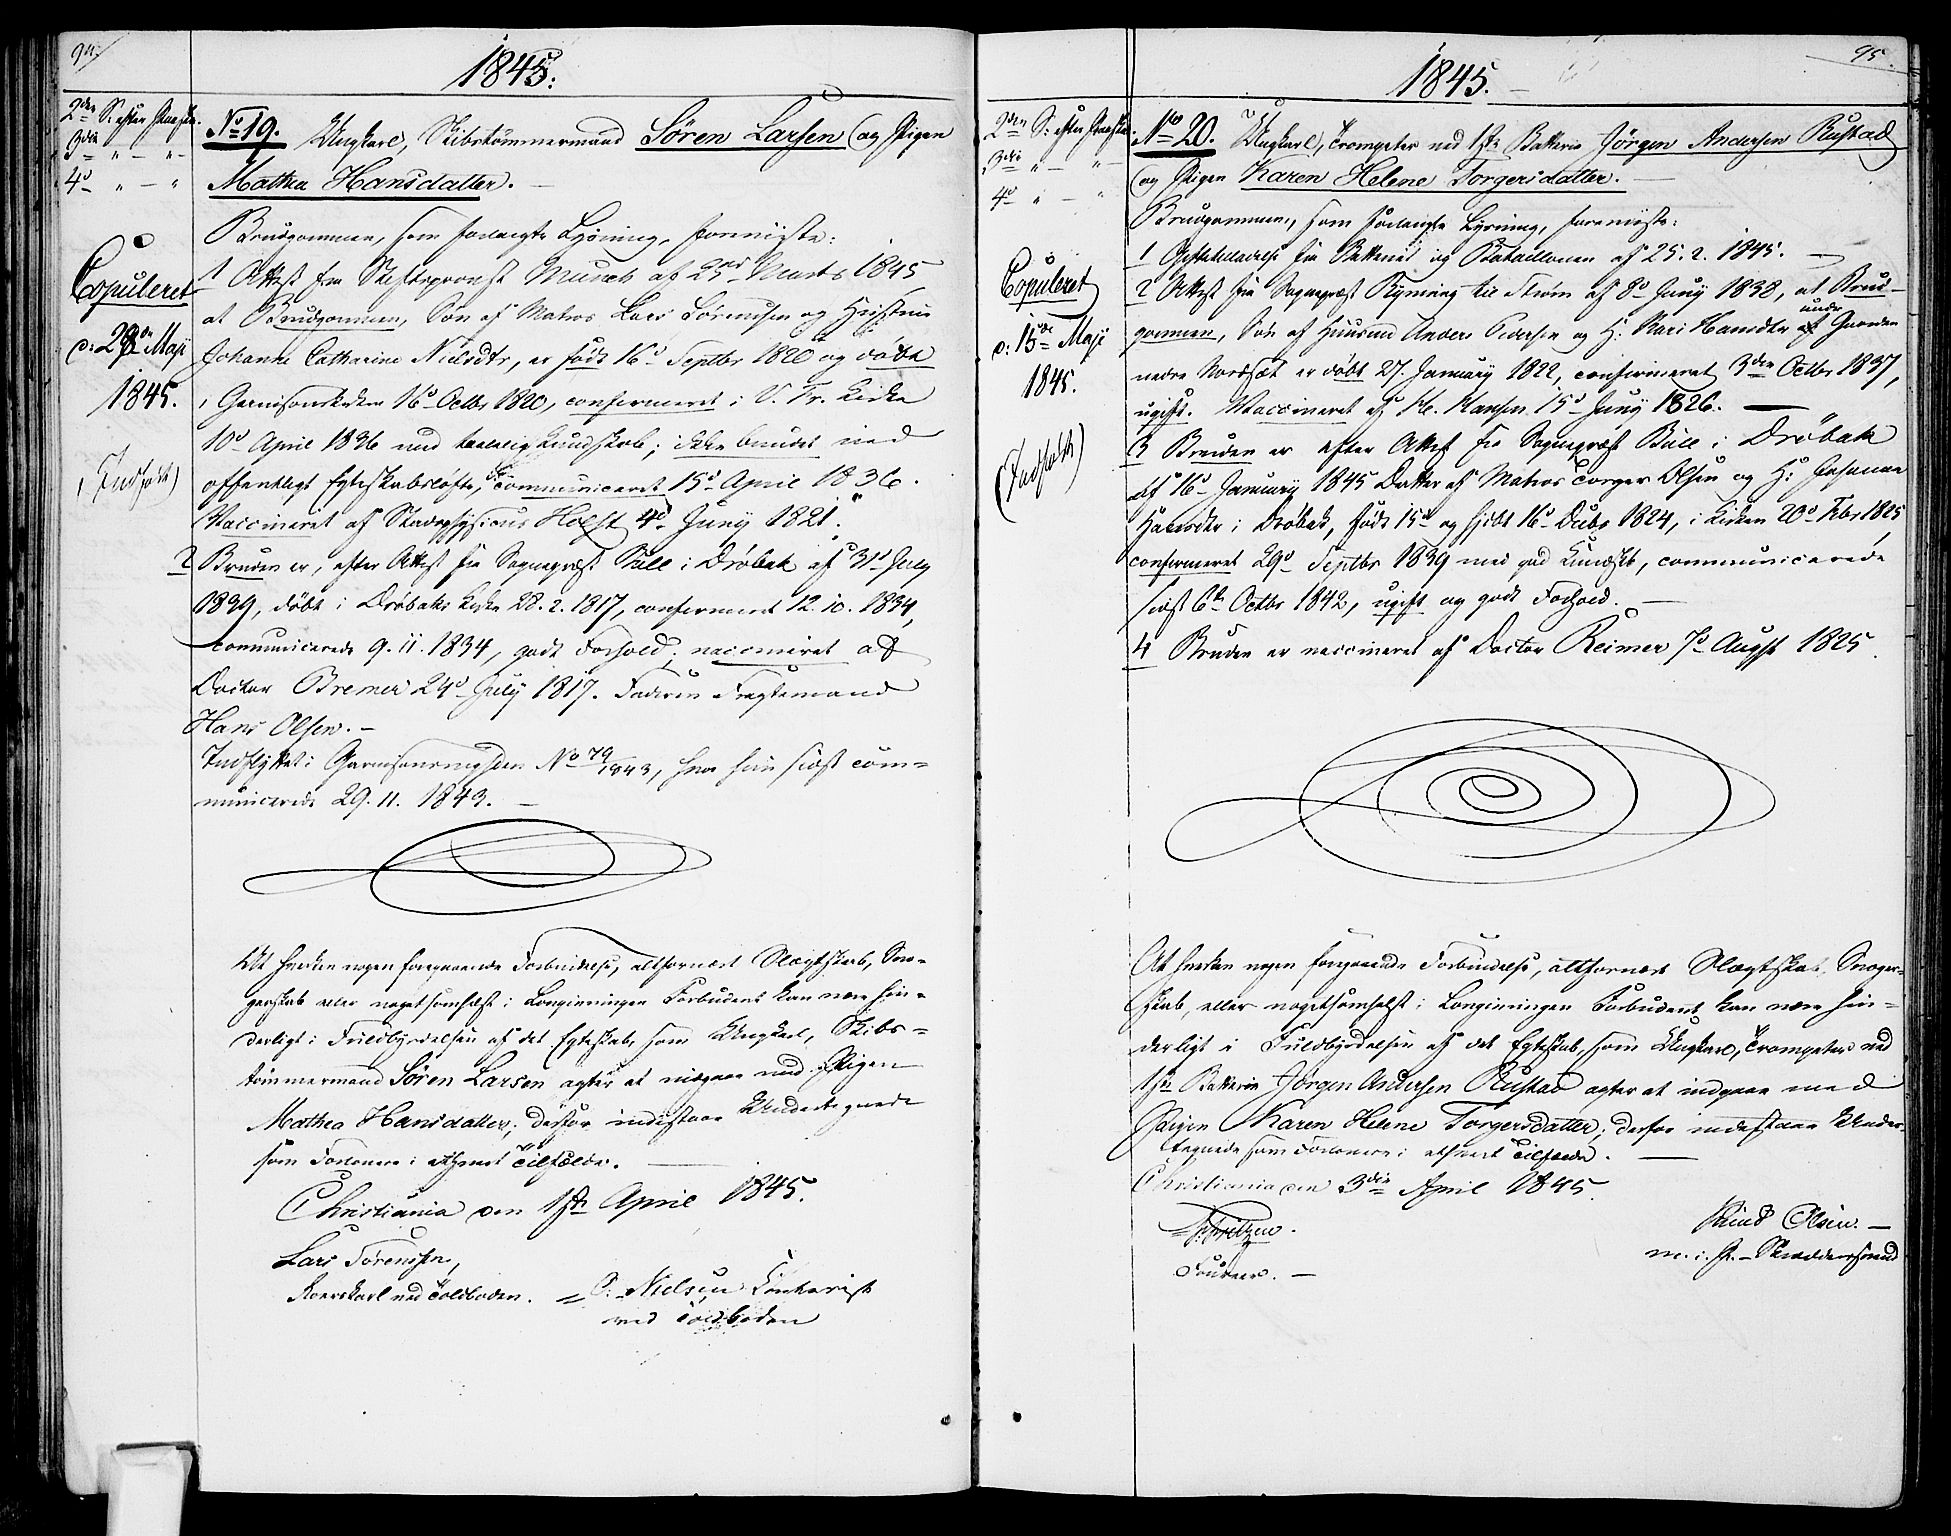 94.
1845.
2den S: efter Paaske.
3die " — "
4de " — "
No 19. Ungkarl, Skibstømmermand Sören Larsen og Pigen
Mathea Hansdatter. —
Copuleret
d: 29de Maji
1845.
(Indført)
Brudgommen, som forlangte Lysning, foreviste:
1 Attest fra Stiftsprovst Munch af 25de Marts 1845
at Brudgommen, Søn af Matros Lars Sörensen og Hustrue
Johanne Cathrine Nielsdtr, er født 16d Septbr 1820 og döbt
i Garnisonskirken 16d Octbr 1820, confirmeret i V. Fr. Kirke
10d April 1836 med taalelig Kundskab; ikke bunden ved
offentligt Egteskabsløfte, communiceret 15d April 1836.
Vaccineret af Stadsphysicus Holst 4d Juny 1821.
2 Bruden er, efter Attest fra Sognepræst Bull i Dröbak af 31d July
1839, döbt i Dröbaks Kirke 28.2.1817, confirmeret 12.10.1834,
communicerede 9.11.1834, godt Forhold; vaccineret af
Doctor Bremer 24d July 1817. Faderen Fragtemand
Hans Olsen. —
Indflyttet i Garnisonsmenigheden No 79/1843, hvor hun sidst com=
municerede 29.11.1843. —
At hverken nogen foregaaende Forbindelse, altfornært Slægtskab, Svo=
gerskab eller nogetsomhelst i Lovgivningen Forbudent kan være hin=
derligt i Fuldbyrdelsen af det Egteskab, som Ungkarl, Skibs=
tömmermand Sören Larsen agter at indgaae med Pigen
Mathea Hansdatter; derfor indestaae Undertegnede
som Forlovere i ethvert Tilfælde. —
Christiania den 1ste April 1845.
Lars Sörensen,
Roerskarl ved Toldboden.
O. Nielsen Contorist
ved Toldboden
95.
1845. —
2den S: efter Paaske.
3die " — "
4de " — "
No 20. Ungkarl, Trompeter ved 1ste Batterie Jörgen Andersen Rustad
og Pigen Karen Helene Torgersdatter. —
Copuleret
d: 15de Maji
1845.
(Indført)
Brudgommen, som forlangte Lysning, foreviste:
1 Giftetilladelse fra Batteriet og Bataillonen af 25.2.1845. —
2 Attest fra Sognepræst Rynning til Strøm af 8d Juny 1838, at Brud-
gommen, Søn af Huusmd Anders Pedersen og H: Kari Hansdtr under Gaarden
nedre Nordsæt er döbt 27. January 1822, confirmeret 3die Octbr 1837,
ugift. Vaccineret af H. Hansen 15d Juny 1826. —
3 Bruden er efter Attest fra Sognepræst Bull i Dröbak
af 16d January 1845 Datter af Matros Torger Olsen og H: Johanne
Hansdtr i Dröbak, født 15d og hjdbt 16d Decbr 1824, i Kirken 20d Febr 1825
confirmeret 29d Septbr 1839 med god Kundskb, communicerede
sidst 6te Octbr 1842, ugift og godt Forhold. —
4 Bruden er vaccineret af Doctor Reimer 7d August 1825.
At hverken nogen foregaaende Forbindelse, altfornært Slægtskab, Svoger-
skab, eller nogetsomhelst i Lovgivningen Forbudent kan være hin=
derligt i Fuldbyrdelsen af det Egteskab, som Ungkarl, Trompeter ved
1ste Batterie Jörgen Andersen Rustad agter at indgaae med
Pigen Karen Helene Torgersdatter; derfor indestaae Under-
tegnede som Forlovere i ethvert Tilfælde. —
Christiania den 3die April 1845.
Fritzen.
Foureer. —
Knud Olsen. —
m. i. P. — Skræddersvend